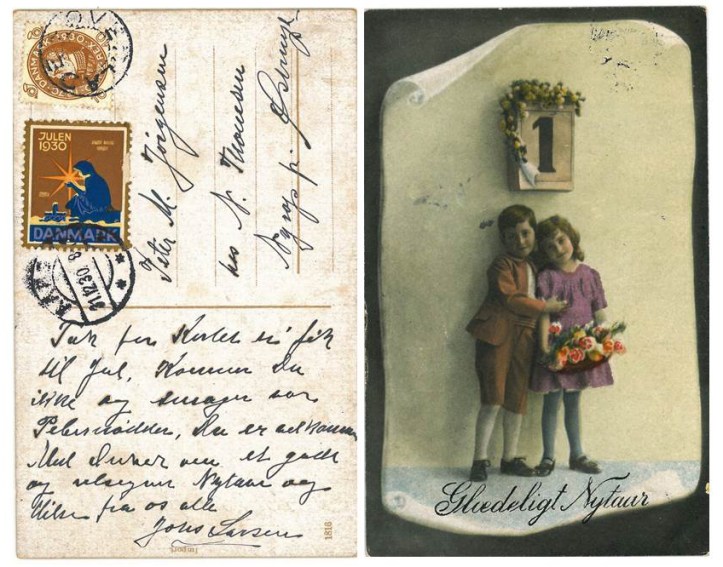 DANMARK 1930
JULEN
1930
DANMARK
31.12.30.8
Peter M. Jørgensen
hos N. Thomsen
Nyrup pr.
Tak for Kortet vi fik
til Jul, Kommer du
ikke og smager vor
Pebernødder, Du er velkommen
et godt
og velsignet Nytaar og
Hilsen fra os alle
Johs Larsen
1816
1
Glædeligt Nytaar